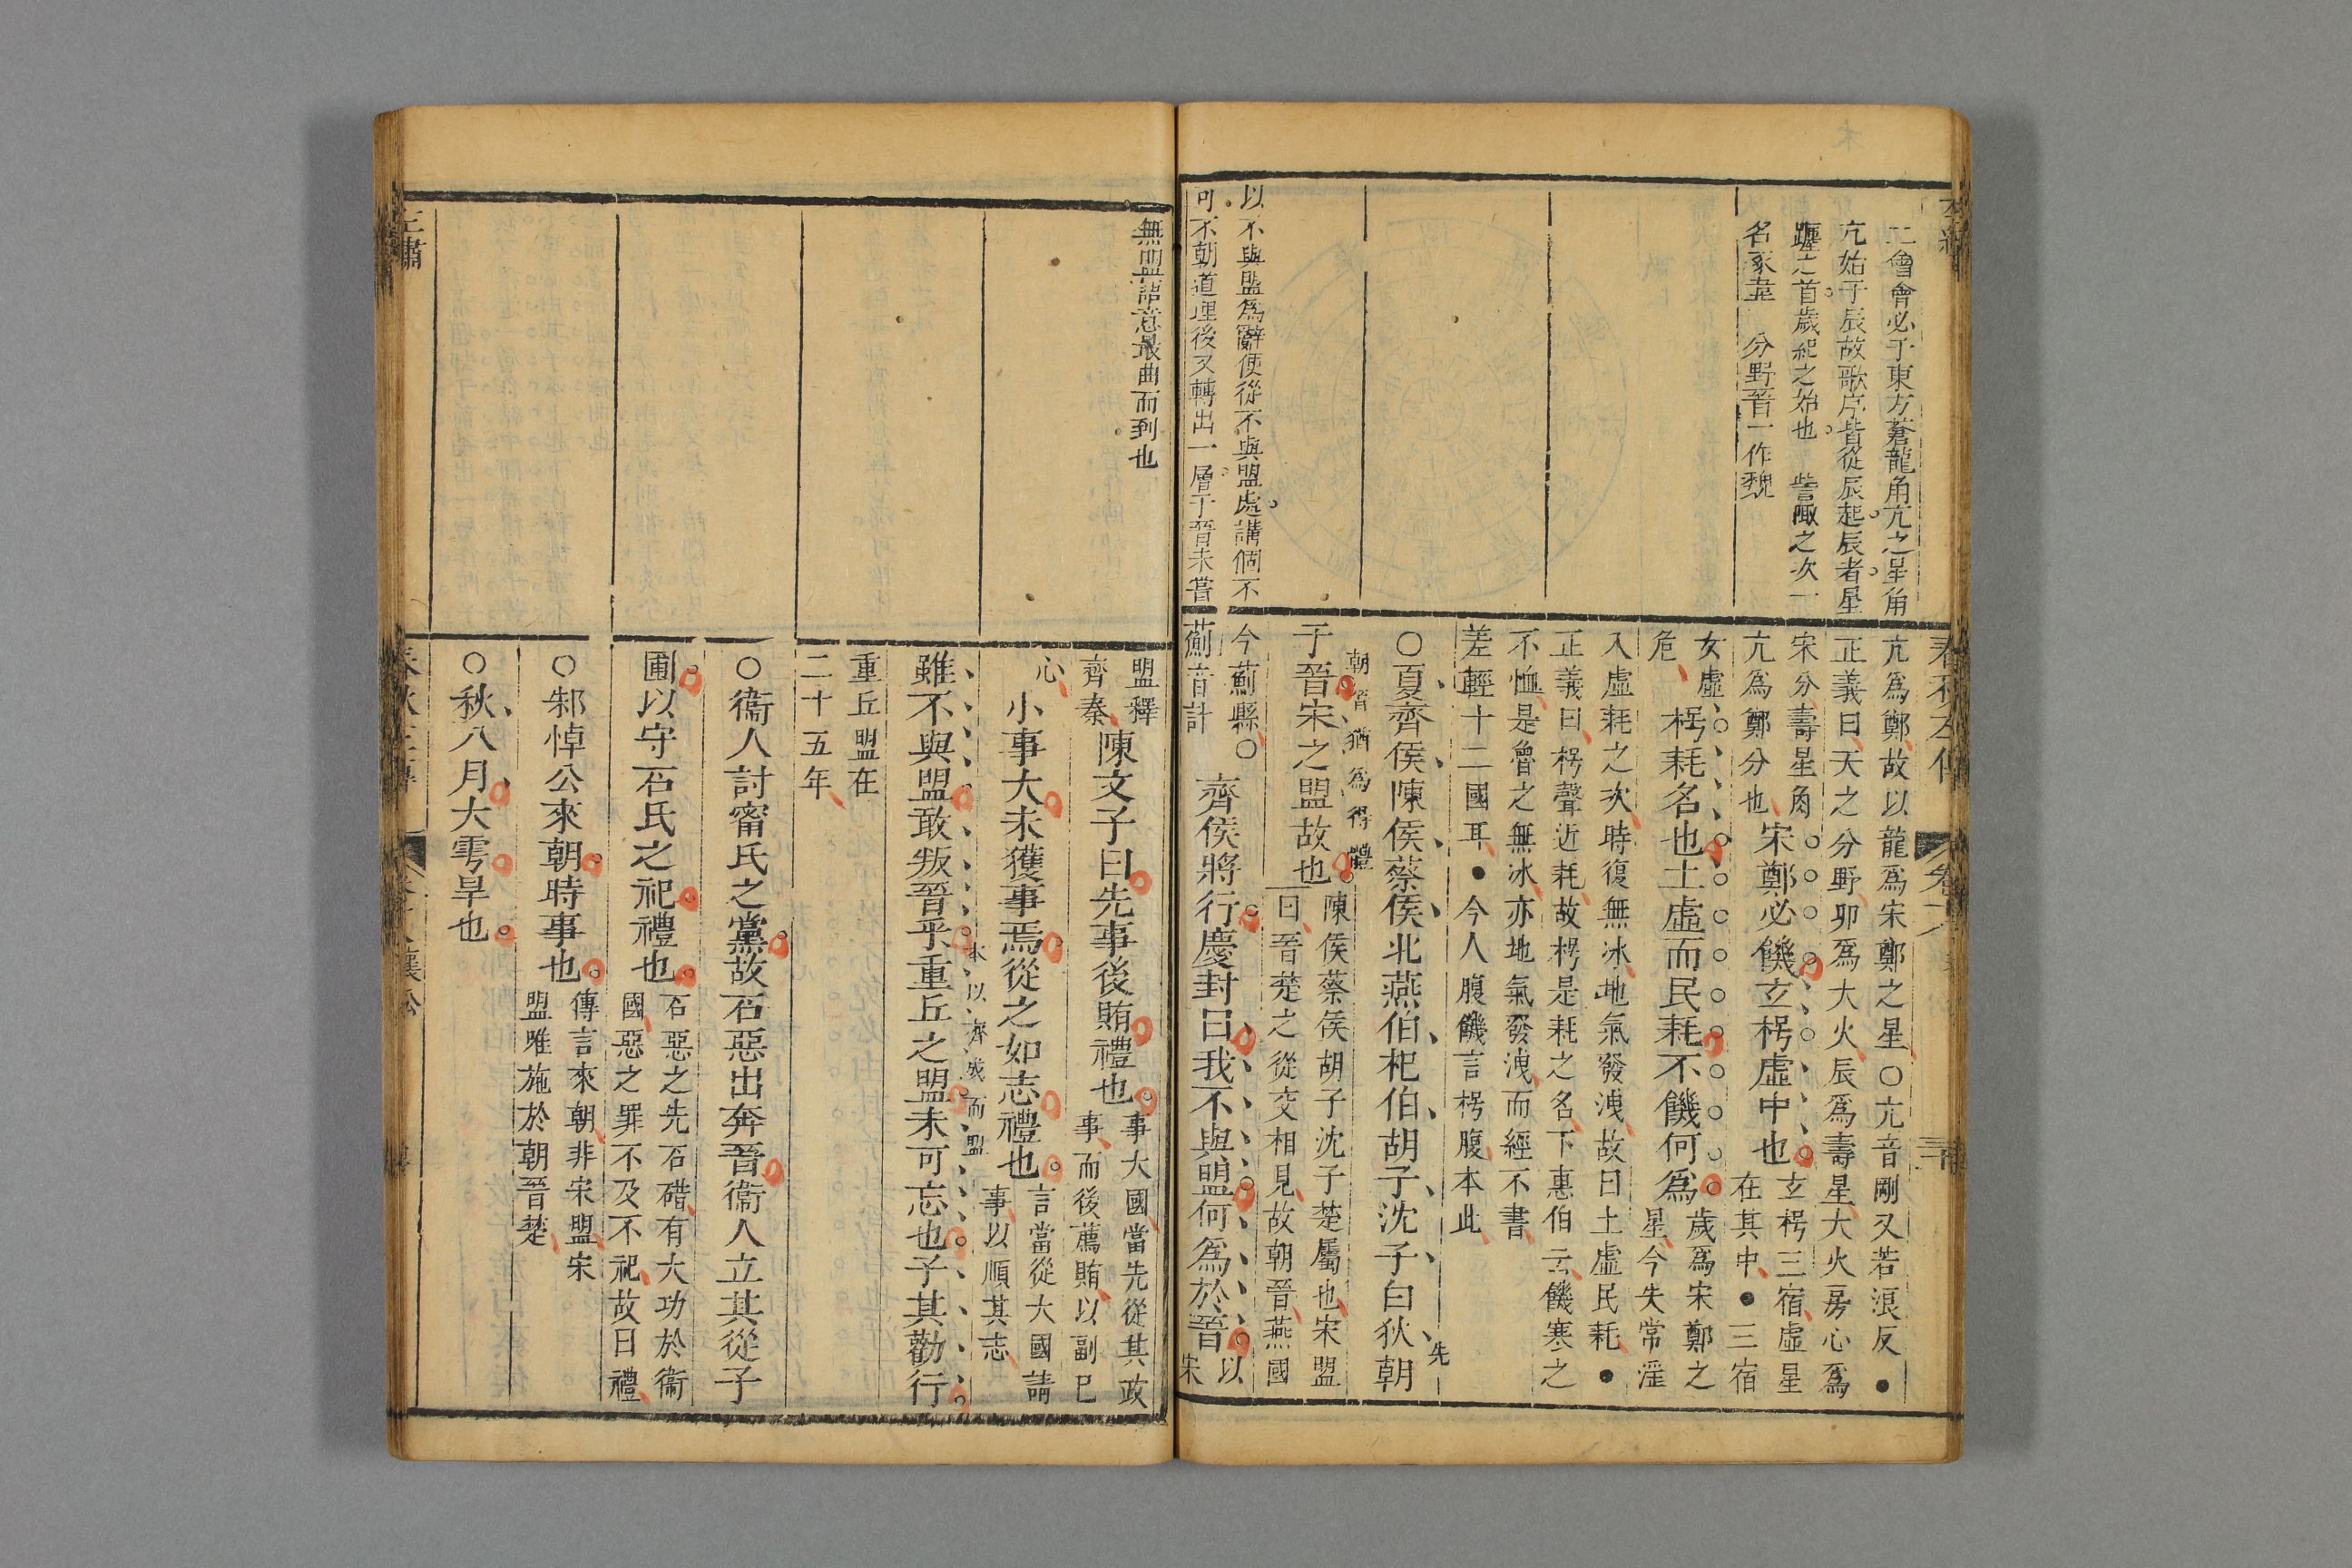 二會會必于東方蒼龍角亢之星角
亢始于辰故歌序皆從辰起辰者星
躔之首歲紀之始也 訾陬之次一
名豕韋 分野晉一作魏
以不與盟為辭便從不與盟處講個不
可不朝道理後又轉出一層于晉未嘗
亢為鄭故以龍為宋鄭之星○亢音剛又若浪反●
正義曰天之分野卯為大火辰為壽星大火房心為
宋分壽星角
亢為鄭分也
宋鄭必饑玄枵虛中也
玄枵三宿虛星
在其中●三宿
女虛
危
枵耗名也土虛而民耗不饑何為
歲為宋鄭之
星今失常淫
入虛耗之次時復無冰地氣發洩故曰土虛民耗●
正義曰枵聲近耗故枵是耗之名下惠伯云饑寒之
不恤是魯之無冰亦地氣發洩而經不書
差輕十二國耳●今人腹饑言枵腹本此
○夏齊侯陳侯蔡侯北燕伯杞伯胡子沈子白狄朝
先
朝晉猶為得禮
于晉宋之盟故也
陳侯蔡侯胡子沈子楚屬也宋盟
曰晉楚之從交相見故朝晉燕國
今薊縣○
薊音計
齊侯將行慶封曰我不與盟何為於晉
以
宋
無盟詔意最曲而到也
盟釋
齊秦
陳文子曰先事後賄禮也
事大國當先從其政
事而後薦賄以副己
心
小事大未獲事焉從之如志禮也
言當從大國請
事以順其志
雖不與盟敢叛晉乎重丘之盟未可忘也子其勸行
本以齊成而盟
重丘盟在
二十五年
○衞人討甯氏之黨故石惡出奔晉衞人立其從子
圃以守石氏之祀禮也
石惡之先石碏有大功於衞
國惡之罪不及不祀故曰禮
○邾悼公來朝時事也
傳言來朝非宋盟宋
盟唯施於朝晉楚
○秋八月大雩旱也